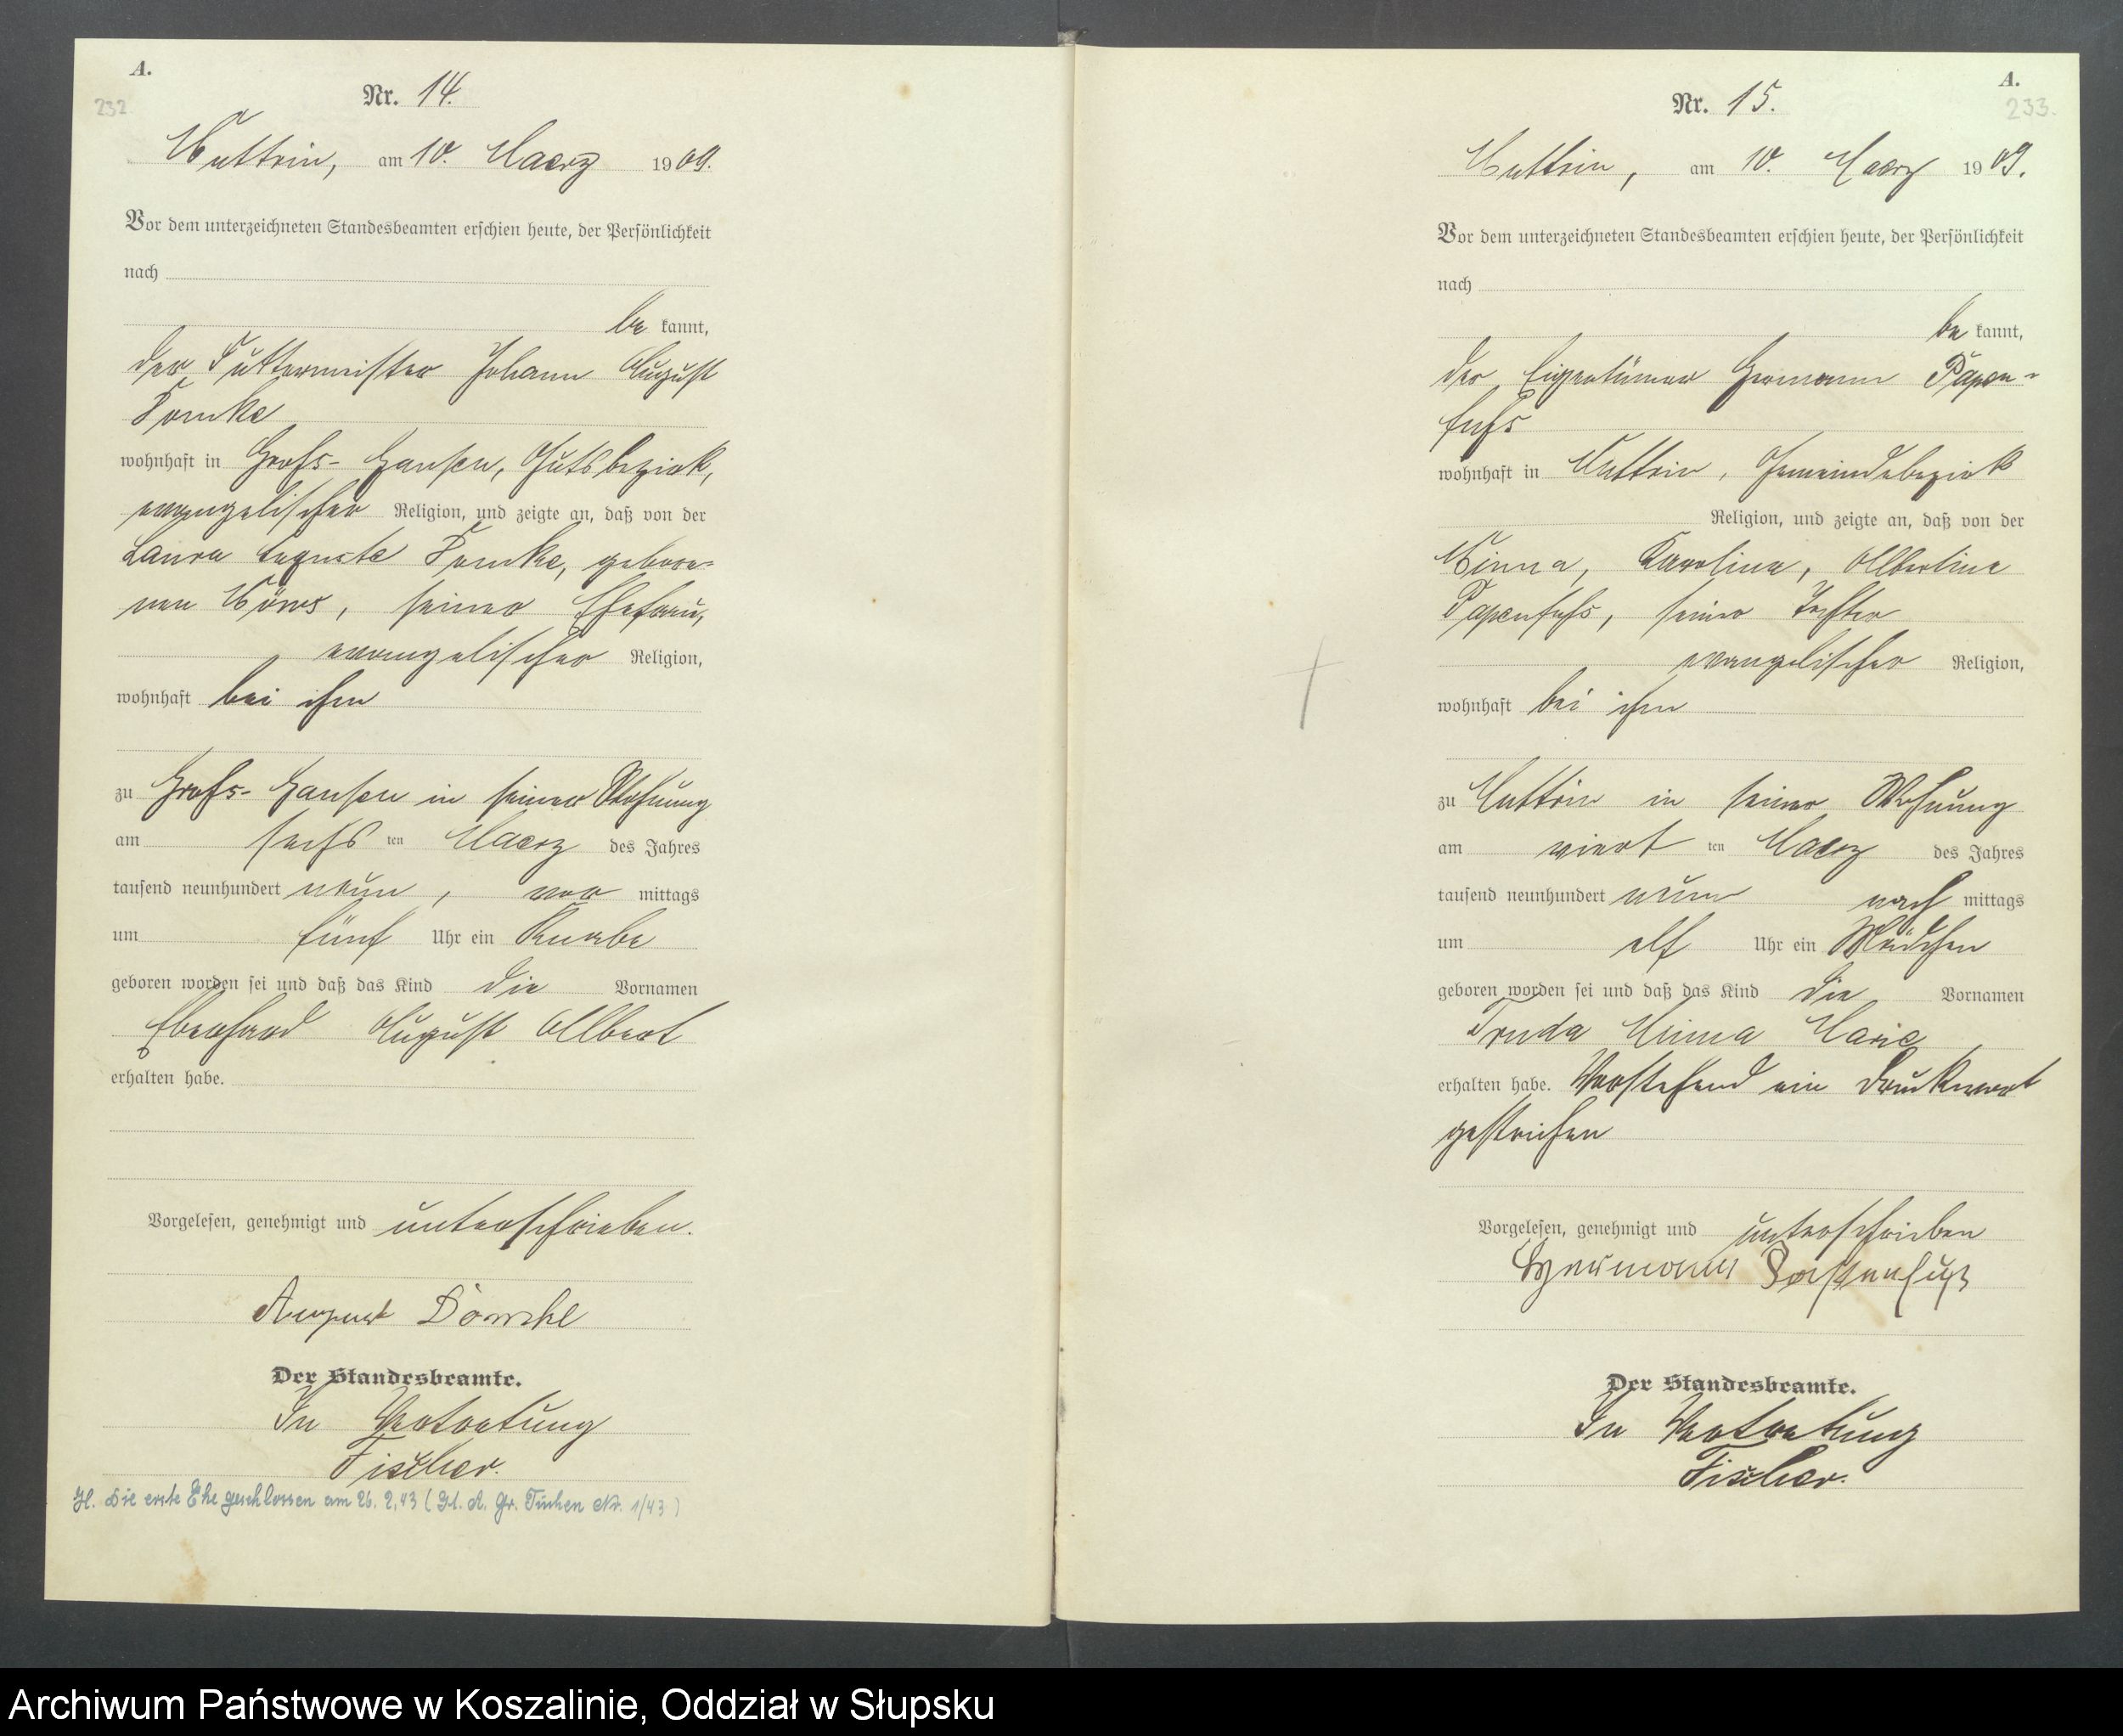 A.
232
Nr. 14.
Muttrin, am 10. Maerz 1909.
Vor dem unterzeichneten Standesbeamten erschien heute, der Persönlichkeit
nach
be kannt,
der Futtermeister Johann August
wohnhaft in Groß- Gansen, Gutsbezirk,
evangelischer Religion, und zeigte an, daß von der
Laura Auguste gebore-
nen seiner Ehefrau,
evangelischer Religion,
wohnhaft bei ihm
zu Groß- Gansen in seiner Wohnung
am sechs ten Maerz des Jahres
tausend neunhundert neun, vor mittags
um fünf Uhr ein Knabe
geboren worden sei und daß das Kind die Vornamen
Eberhard August Albert
erhalten habe.
Vorgelesen, genehmigt und unterschrieben.
August
Der Standesbeamte.
In Vertretung
Fischer.
Die erste Ehe geschlossen am 26. 2. 43 (St. A. Gr. Tuchen Nr. 1/43)
A.
233.
Nr. 15.
Muttrin, am 10. Maerz 1909.
Vor dem unterzeichneten Standesbeamten erschien heute, der Persönlichkeit
nach
be kannt,
der Eigentümer Hermann Papen-
fuß
wohnhaft in Muttrin, Gemeindebezirk
Religion, und zeigte an, daß von der
Minna, Karoline, Albertine
Papenfuß, seiner Tochter
evangelischer Religion,
wohnhaft bei ihm
zu Muttrin in seiner Wohnung
am viert ten Maerz des Jahres
tausend neunhundert neun nach mittags
um elf Uhr ein Mädchen
geboren worden sei und daß das Kind die Vornamen
Truda Minna Marie
erhalten habe. Vorstehend ein Druckwort
gestrichen
Vorgelesen, genehmigt und unterschrieben
Hermann Papenfuß
Der Standesbeamte.
In Vertretung
Fischer.
Archiwum Państwowe w Koszalinie, Oddział w Słupsku